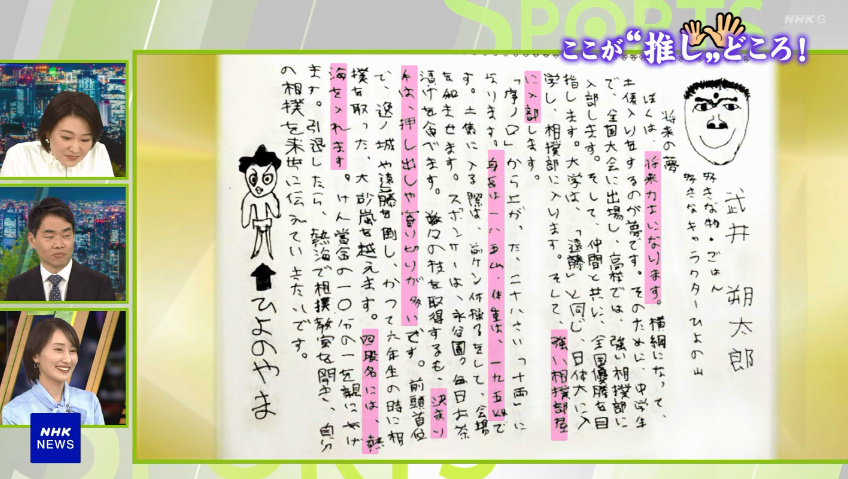 SPORTS
NHK G
ここが“推し„どころ！
武井 朔太郎
好きな物・ごはん
好きなキャラクターひよの山
将来の夢
ぼくは、将来力士になります。横綱になって、
土俵入りをするのが夢です。そのために、中学生
で、全国大会に出場し、高校では、強い相撲部に
入部します。そして、仲間と共に、全国優勝を目
指します。大学は、「遠藤」と同じ、日体大に入
学し、相撲部に入ります。そして、強い相撲部屋
に入部します。
「序ノ口」から上がった、二十八さい「十両」に
なります。身長は一八五cm、体重は、一九五kgで
す。土俵に入る際は、体操をして、会場
を和ませます。スポンサーは、永谷園。毎日お茶
漬けを食べます。数々の技を取得するも、決まり
手は、押し出しや寄り切りが多いです。前頭首位
で、逸ノ城や遠藤を倒し、かつて六年生の時に相
撲を取った、大砂嵐を越えます。四股名には、熱
海を入れます。けん賞金の一〇分の一を親にあげ
ます。引退したら、熱海で相撲教室を開き、自分
の相撲を来世に伝えていきたいです。
ひよのやま
NHK
NEWS
SPORTS